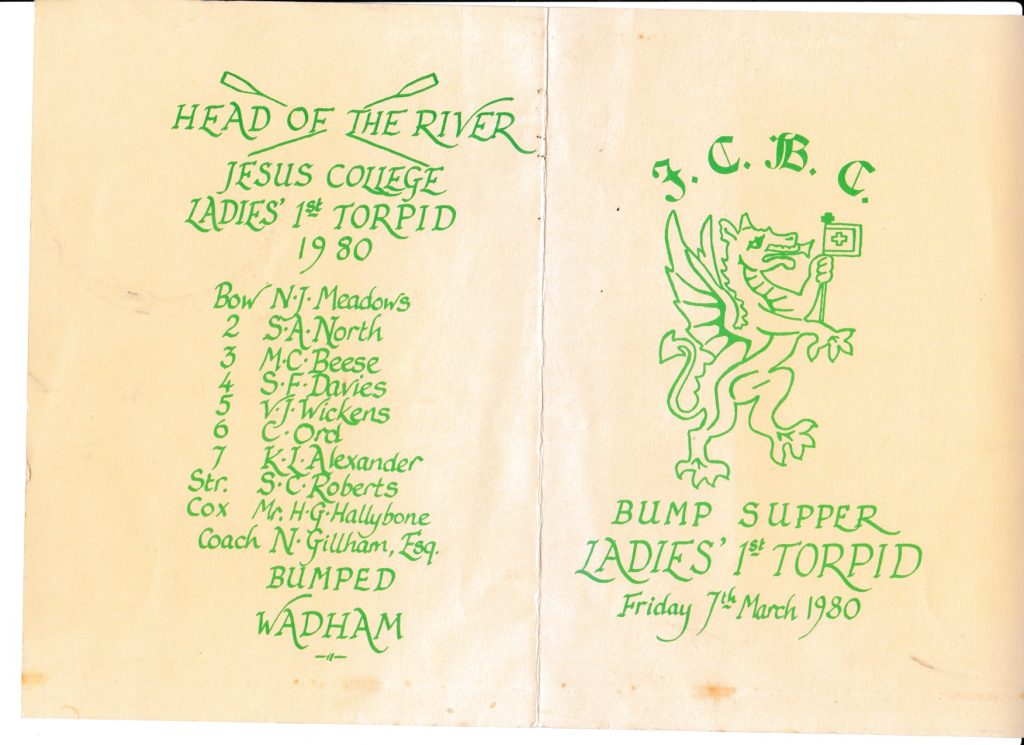 HEAD OF THE RIVER
JESUS COLLEGE
LADIES' 1st TORPID
1980
Bow N.J. Meadows
2 S.A. North
3 M.C. Beese
4 S.F. Davies
5 V.J. Wickens
6 C. Ord
7 K.L. Alexander
Str. S.C. Roberts
Cox Mr. H.G. Hallybone
Coach N. Gillham, Esq.
BUMPED
WADHAM
J. C. B. C.
BUMP SUPPER
LADIES' 1st TORPID
Friday 7th March 1980